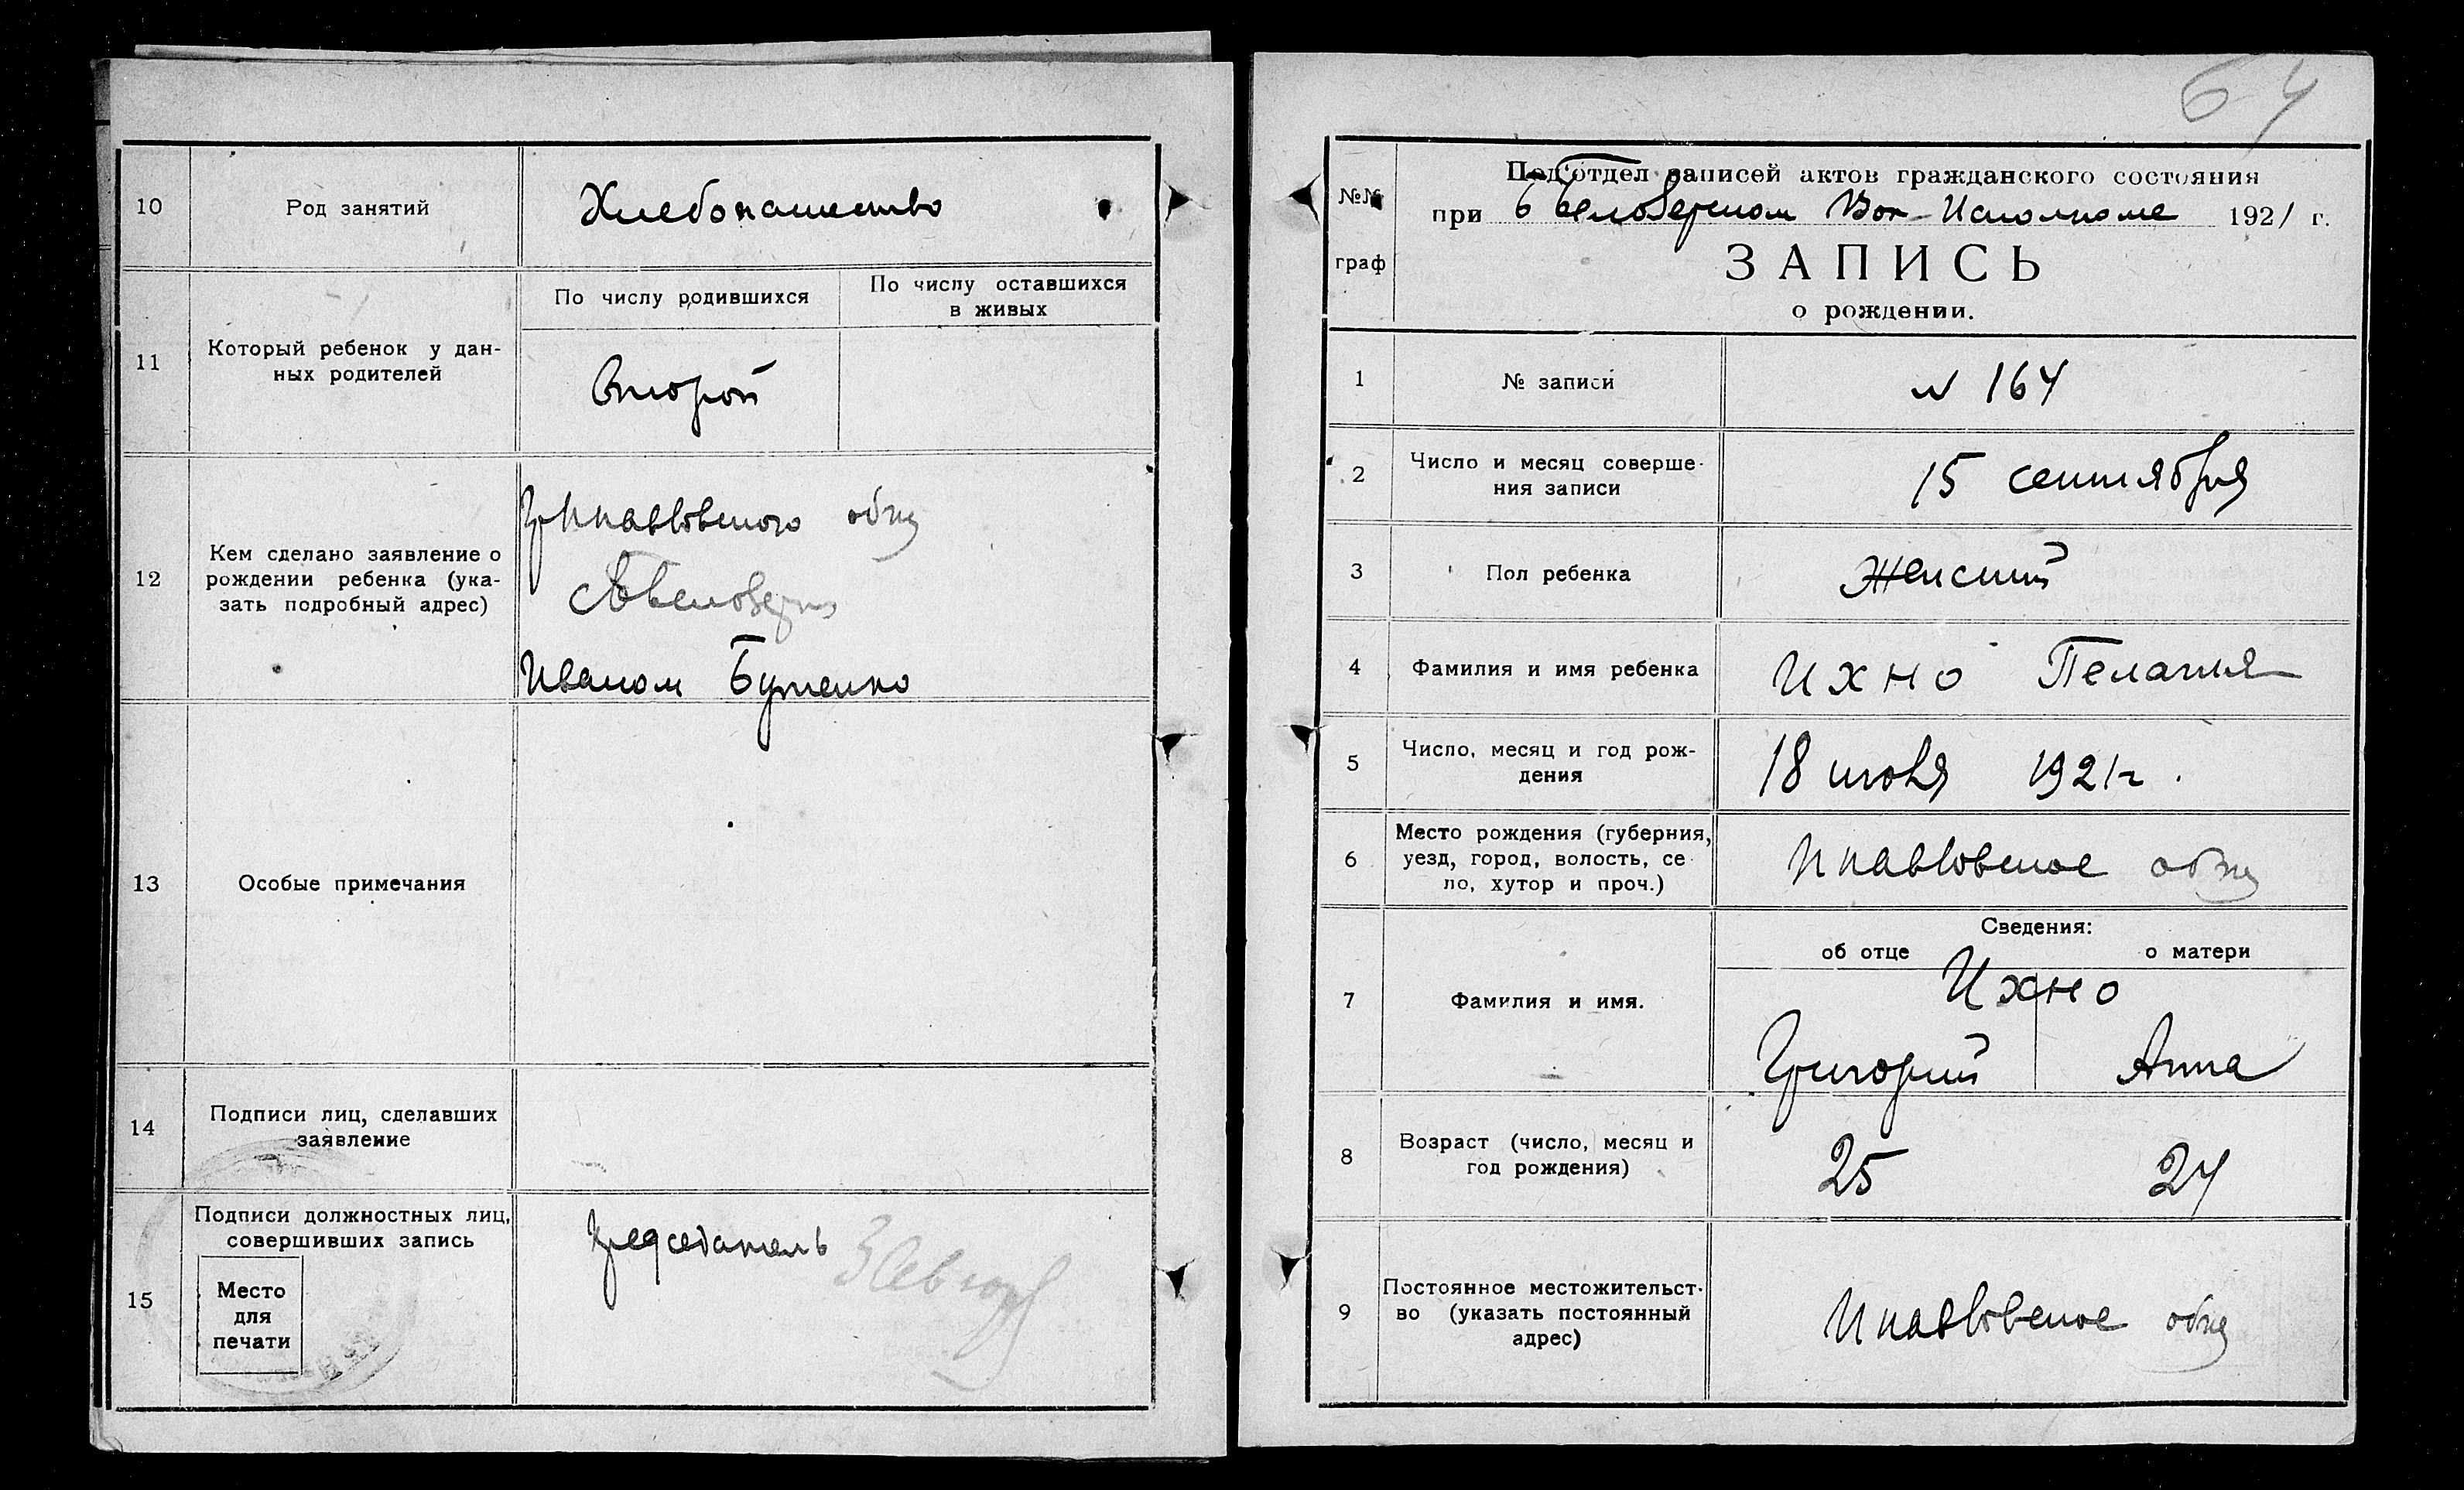 10
Род занятий
Хлебопашество
11
Который ребенок у дан-
ных родителей
По числу родившихся
По числу оставшихся
в живых
Второй
12
Кем сделано заявление о
рождении ребенка (ука-
зать подробный адрес)
обще
Иваном Бутенко
13
Особые примечания
14
Подписи лиц, сделавших
заявление
15
Подписи должностных лиц,
совершивших запись
Место
для
печати
Председатель
64
№№
граф
Подотдел записей актов гражданского состояния
при Беловерском Вол-Исполкоме 1921 г.
ЗАПИСЬ
о рождении.
1
№ записи
N 164
2
Число и месяц соверше-
ния записи
15 сентября
3
Пол ребенка
Женский
4
Фамилия и имя ребенка
Ихно Пелагия
5
Число, месяц и год рож-
дения
18 июля 1921 г.
6
Место рождения (губерния,
уезд, город, волость, се-
ло, хутор и проч.)
7
Фамилия и имя.
Сведения:
об отце
о матери
Ихно
Григорий
Анна
8
Возраст (число, месяц и
год рождения)
25
24
9
Постоянное местожительст-
во (указать постоянный
адрес)